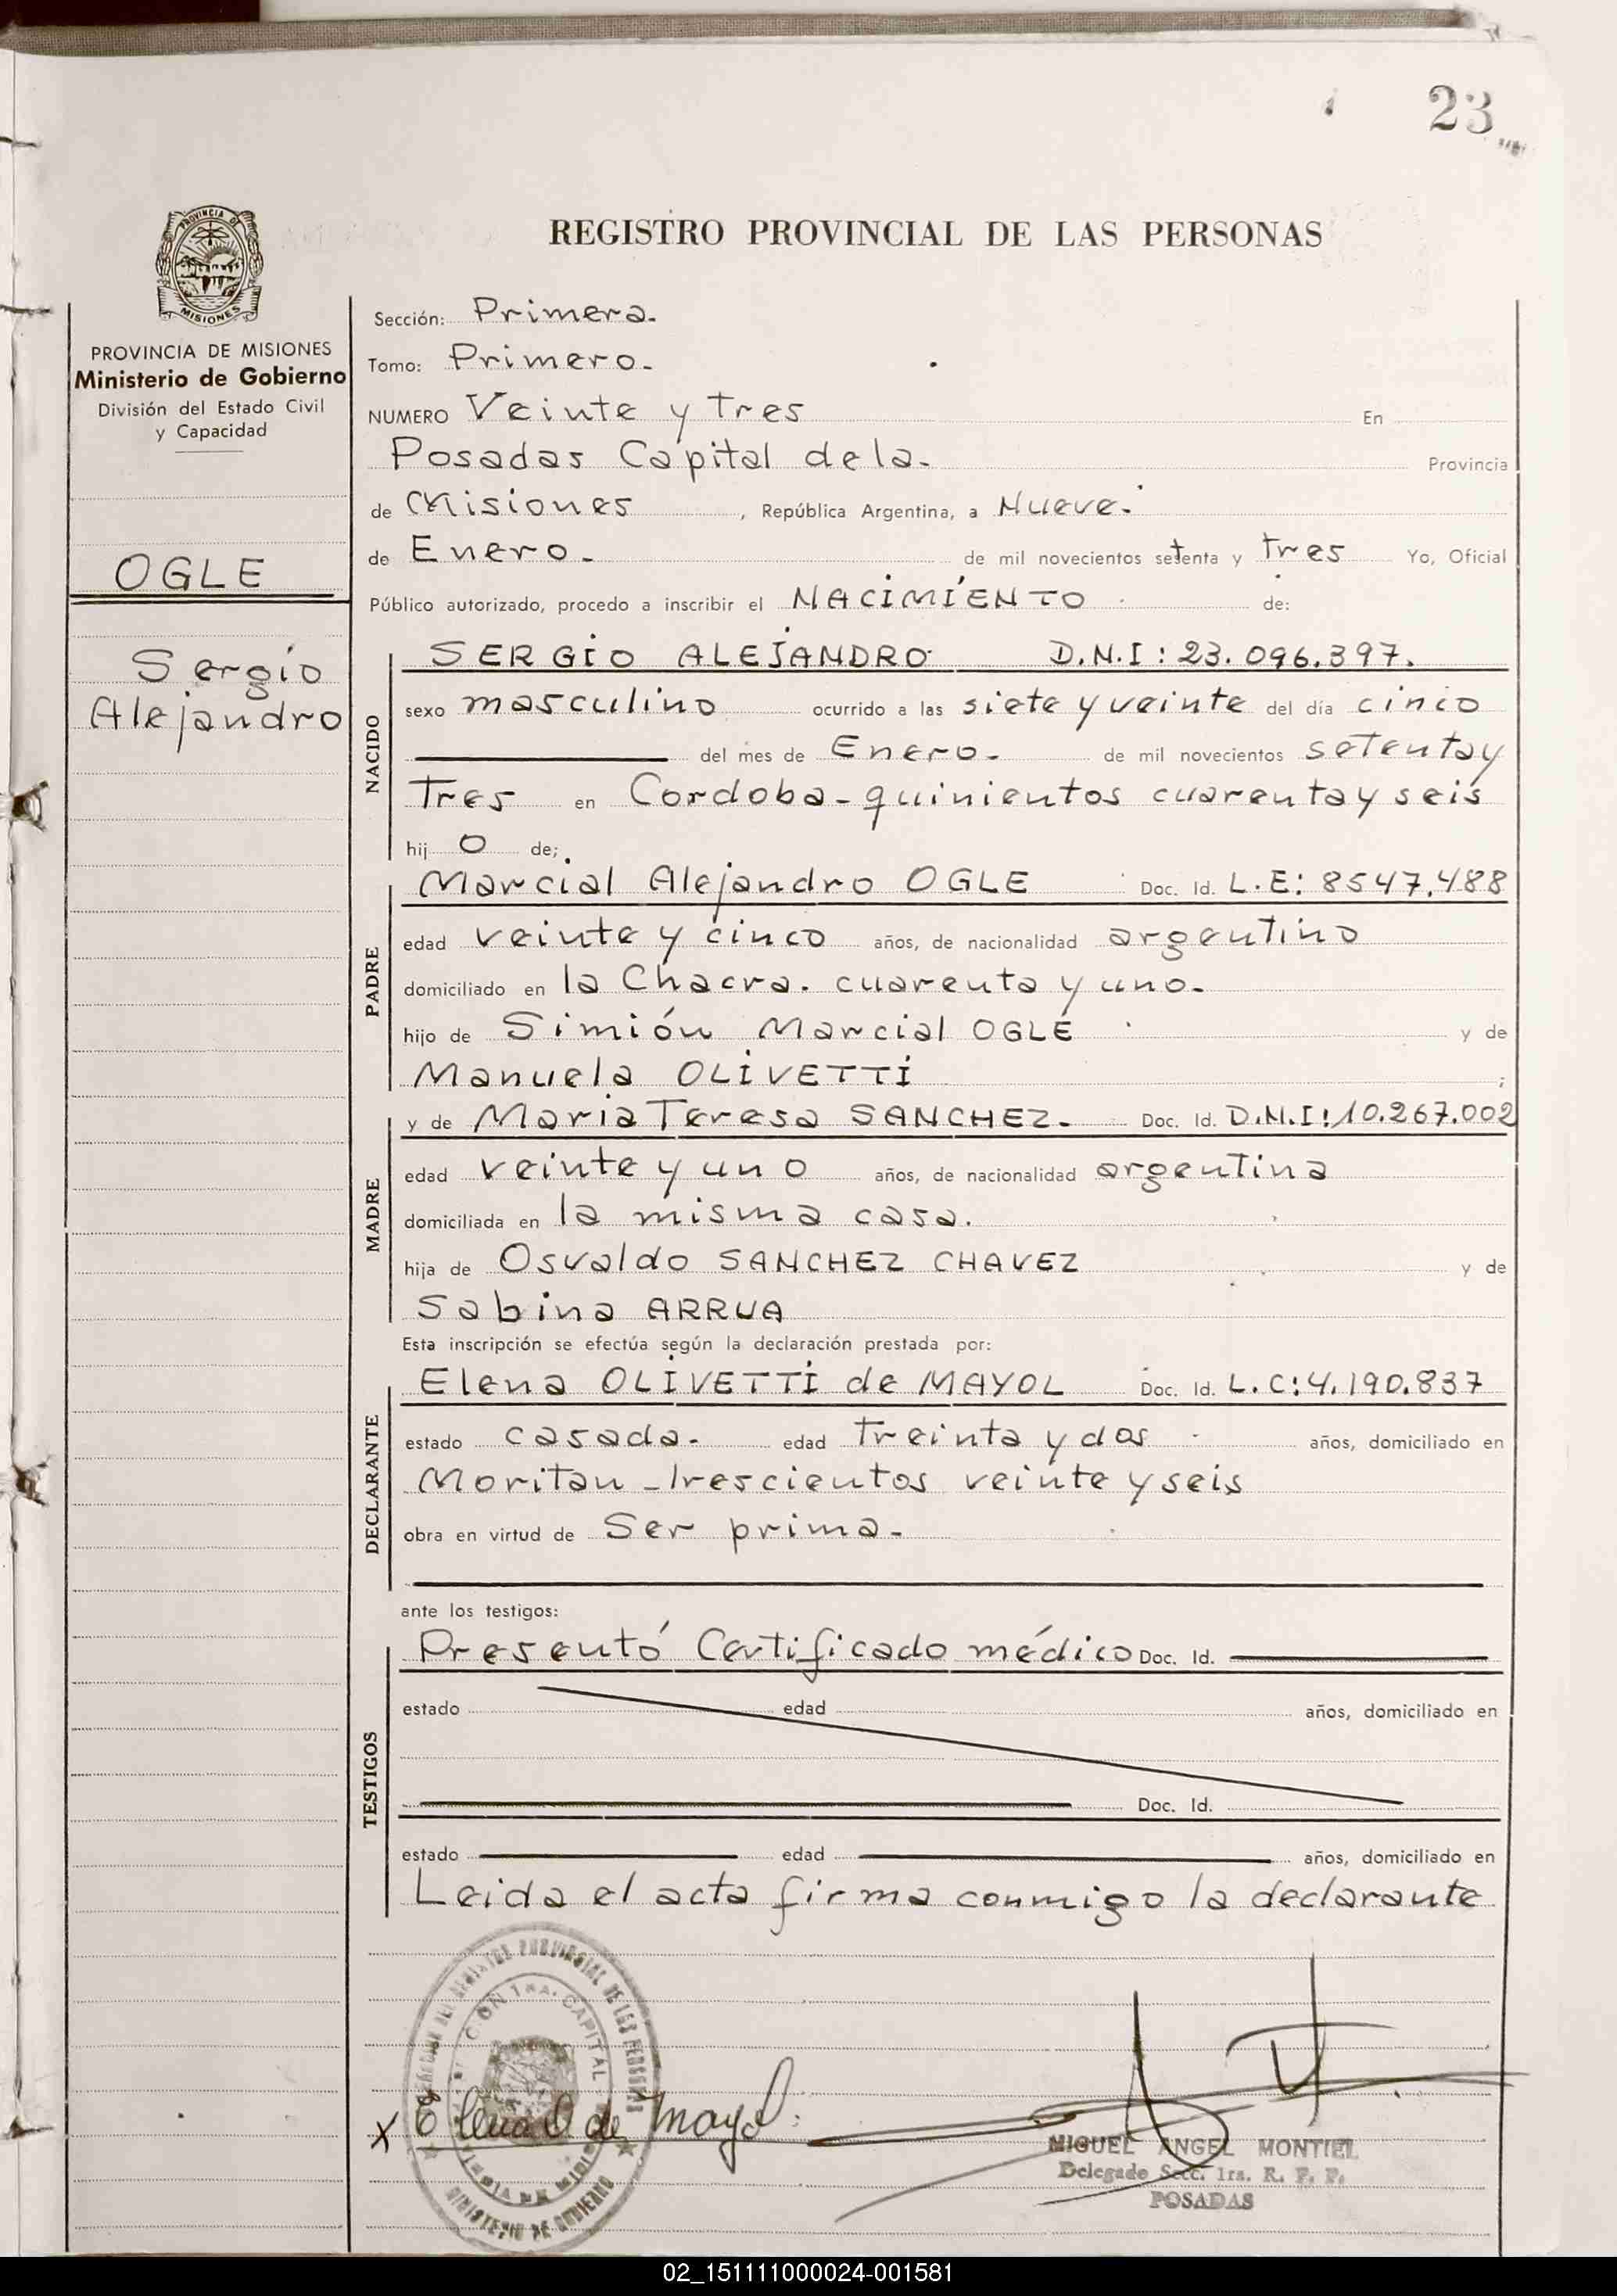 23
REGISTRO PROVINCIAL DE LAS PERSONAS
PROVINCIA DE MISIONES
Ministerio de Gobierno
División del Estado Civil
y Capacidad
OGLE
Sergio
Alejandro
Sección: Primera.
Tomo: Primero.
NUMERO Veinte y Tres En
Posadas Capital de la. Provincia
de Misiones, República Argentina, a Nueve.
de Enero. de mil novecientos setenta y tres Yo, Oficial
Público autorizado, procedo a inscribir el NACIMIENTO de:
NACIDO
SERGIO ALEJANDRO D.N.I: 23.096.397.
sexo masculino ocurrido a las siete y veinte del día cinco
del mes de Enero. de mil novecientos setenta y
Tres en Cordoba-quinientos cuarenta y seis
hij o de;
PADRE
Marcial Alejandro OGLE Doc. Id. L.E: 8547.488
edad veinte y cinco años, de nacionalidad argentino
domiciliado en la Chacra. cuarenta y uno.
hijo de Simión Marcial OGLE y de
Manuela OLIVETTI ;
MADRE
y de Maria Teresa SANCHEZ. Doc. Id. D.N.I: 10.267.002
edad veinte y uno años, de nacionalidad argentina
domiciliada en la misma casa.
hija de Osvaldo SANCHEZ CHAVEZ y de
Sabina ARRUA
Esta inscripción se efectúa según la declaración prestada por:
DECLARANTE
Elena OLIVETTI de MAYOL Doc. Id. L.C: 4.190.837
estado casada. edad Treinta y dos años, domiciliado en
Moritan - Trescientos veinte y seis
obra en virtud de Ser prima.
ante los testigos:
TESTIGOS
Presentó Certificado médico Doc. Id.
estado edad años, domiciliado en
Doc. Id.
estado edad años, domiciliado en
Leida el acta firma conmigo la declarante
CAPITAL
MINISTERIO DE GOBIERNO
x Elena O de Mayol
MIGUEL ANGEL MONTIEL
Delegado Secc. 1ra. R. P. P.
POSADAS
02_151111000024-001581